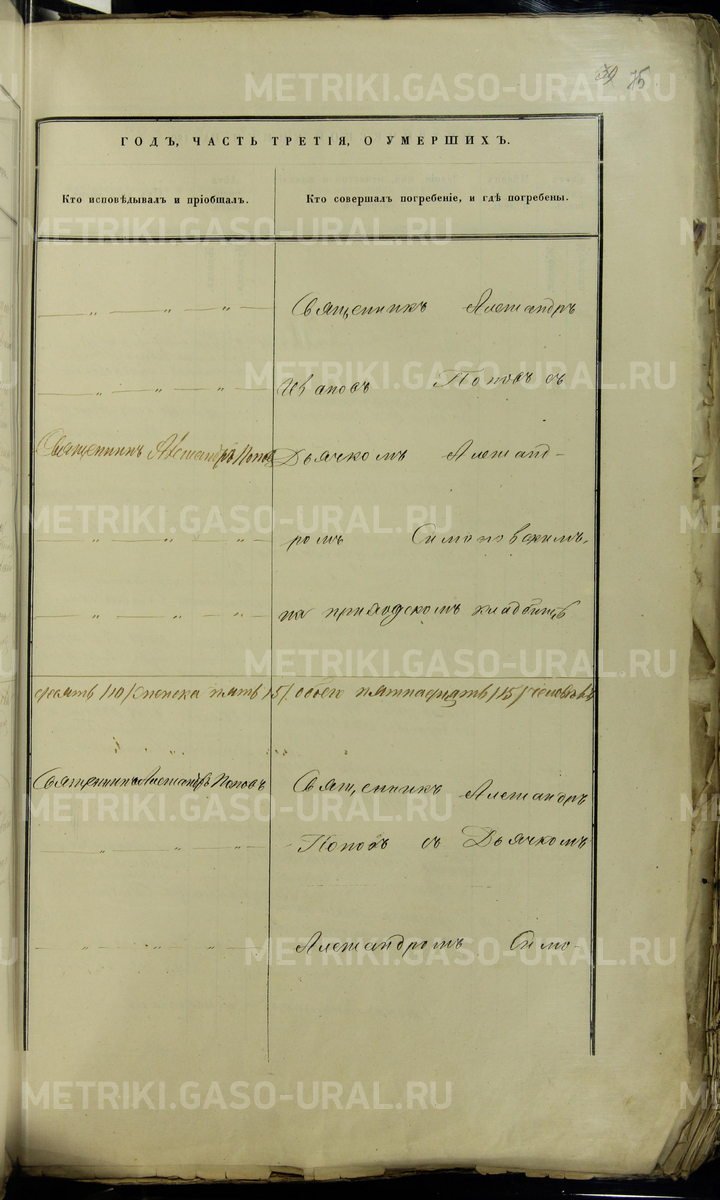 39 75
ГОДЪ, ЧАСТЬ ТРЕТІЯ, О УМЕРШИХЪ.
Кто исповѣдывалъ и пріобщалъ.
Кто совершалъ погребеніе, и гдѣ погребены.
Священникъ Александръ
Ивановъ Поповъ съ
Священникъ Александръ Поповъ
Дьячкомъ Александ-
ромъ Симоновскимъ,
на приходскомъ кладбищѣ
десять /10/ женска пять /5/ обоего пятнадцать /15/ человѣкъ
Священникъ Александръ Поповъ
Священникъ Александръ
Поповъ съ Дьячкомъ
Александромъ Симо-
METRIKI.GASO-URAL.RU